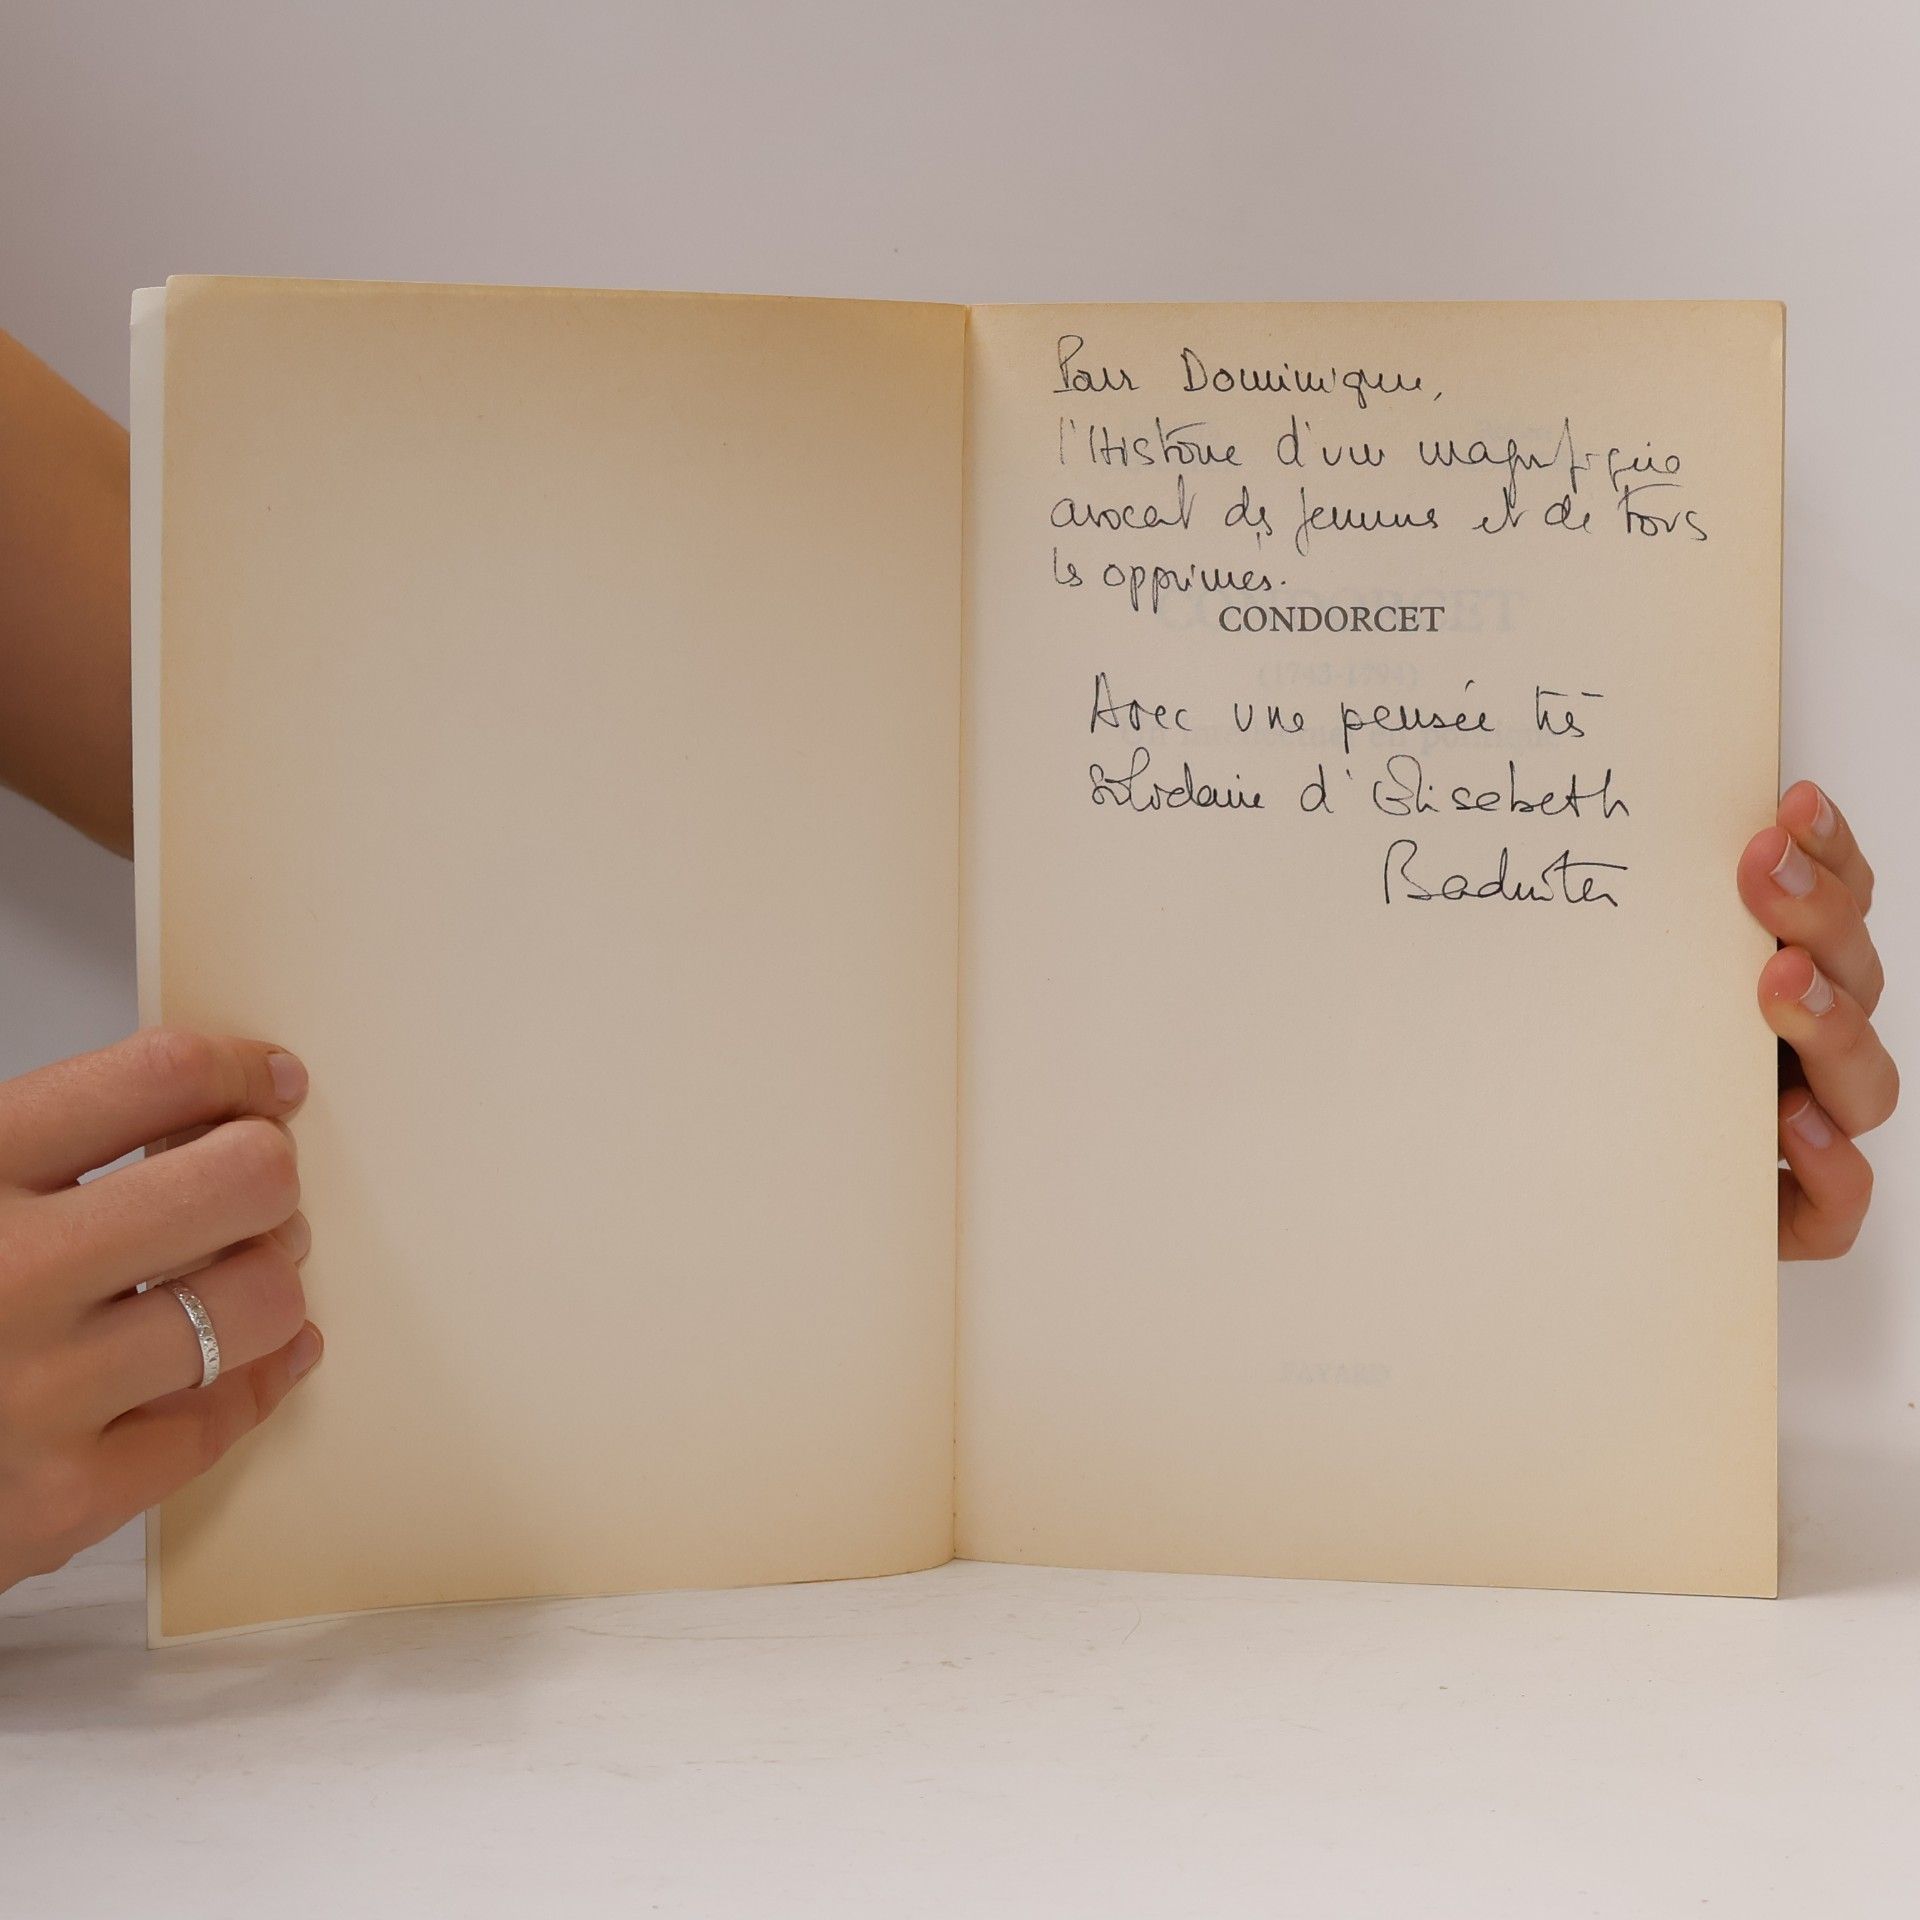 Pour Dominique,
l'Histoire d'un magnifique
avocat des femmes et de tous
les opprimés.
CONDORCET
(1743-1794)
Avec une pensée très
solidaire d'Elisabeth
Badinter
FAYARD